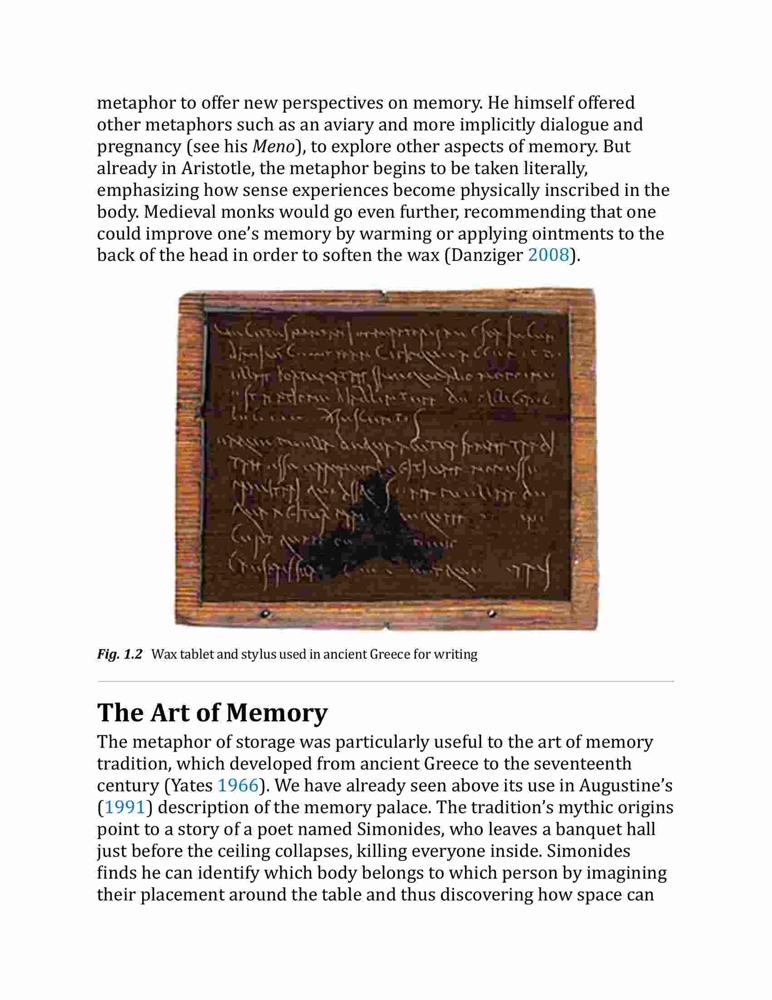 metaphor to offer new perspectives on memory. He himself offered
other metaphors such as an aviary and more implicitly dialogue and
pregnancy (see his Meno), to explore other aspects of memory. But
already in Aristotle, the metaphor begins to be taken literally,
emphasizing how sense experiences become physically inscribed in the
body. Medieval monks would go even further, recommending that one
could improve one’s memory by warming or applying ointments to the
back of the head in order to soften the wax (Danziger 2008).
Fig. 1.2 Wax tablet and stylus used in ancient Greece for writing
The Art of Memory
The metaphor of storage was particularly useful to the art of memory
tradition, which developed from ancient Greece to the seventeenth
century (Yates 1966). We have already seen above its use in Augustine’s
(1991) description of the memory palace. The tradition’s mythic origins
point to a story of a poet named Simonides, who leaves a banquet hall
just before the ceiling collapses, killing everyone inside. Simonides
finds he can identify which body belongs to which person by imagining
their placement around the table and thus discovering how space can